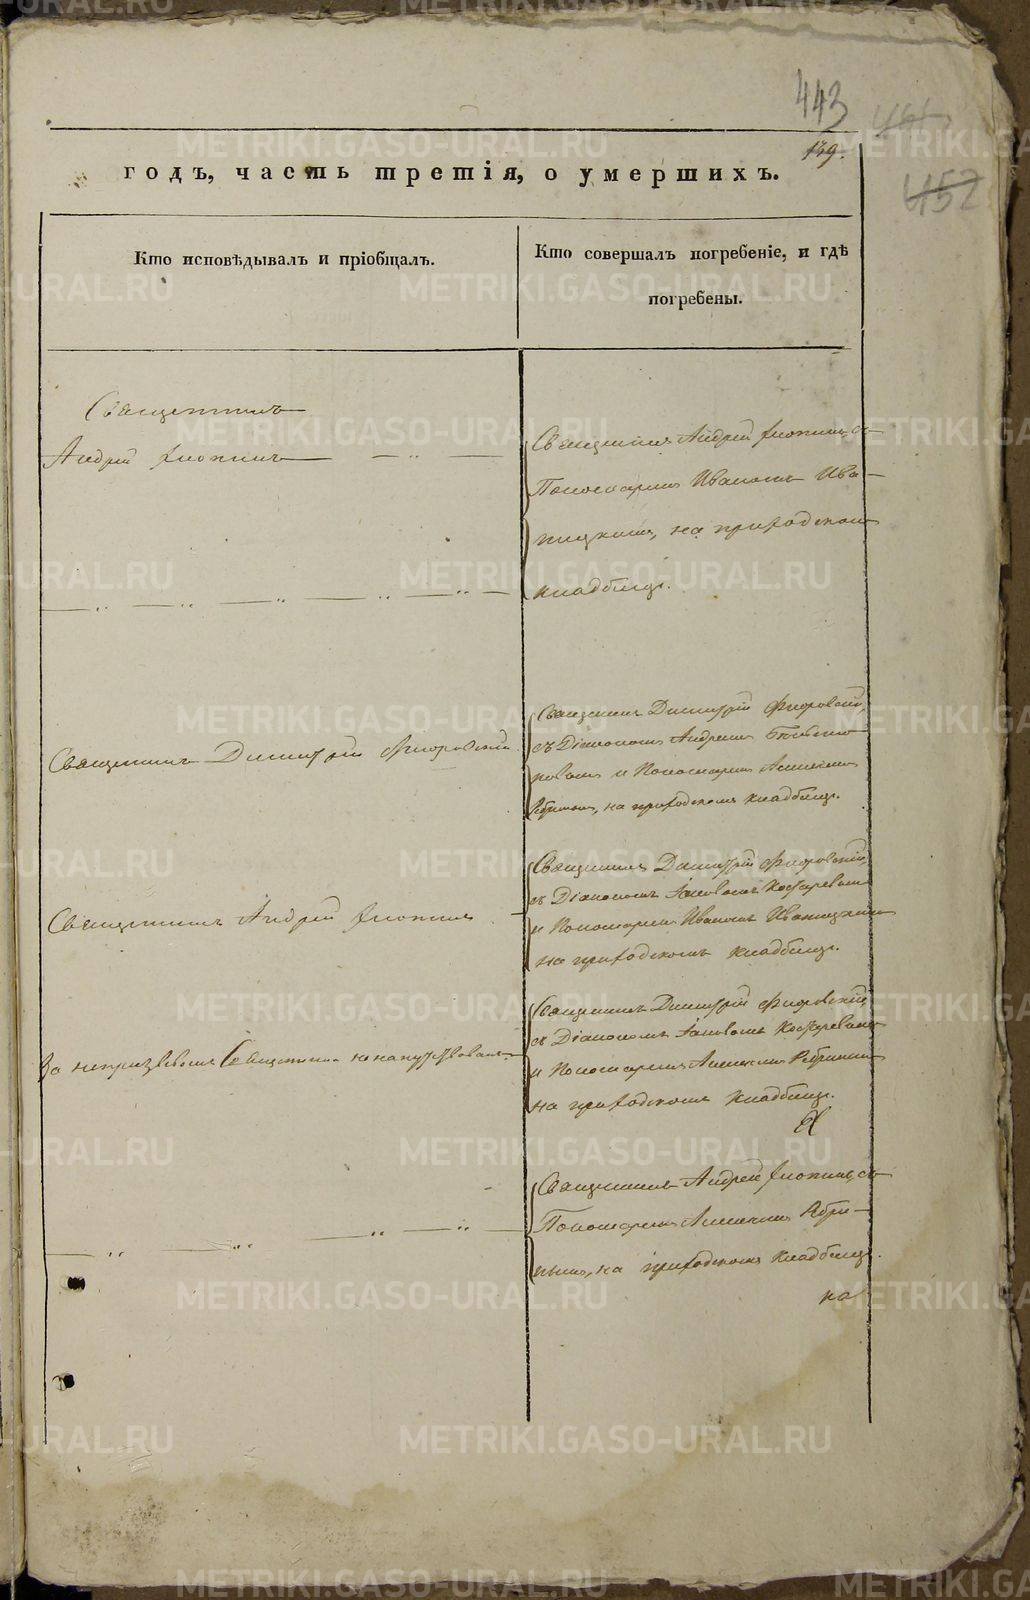 443
139.
452
годъ, часть третія, о умершихъ.
Кто исповѣдывалъ и пріобщалъ.
Кто совершалъ погребеніе, и гдѣ
погребены.
Священникъ
Андрей
Священникъ Андрей съ
Пономаремъ Иваномъ Ива-
ницкимъ, на приходскомъ
кладбищѣ.
Священникъ Димитрій Флоровскій
Священникъ Димитрій Флоровскій,
съ Діакономъ Андреемъ
и Пономаремъ Алексеемъ
на приходскомъ кладбищѣ.
Священникъ Андрей
Священникъ Димитрій Флоровскій,
съ Діакономъ Іаковомъ Косаревымъ
и Пономаремъ Иваномъ Иваницкимъ
на приходскомъ кладбищѣ.
За непризывомъ Священника не напутствованъ.
Священникъ Димитрій Флоровскій
съ Діакономъ Іаковомъ Косаревымъ
и Пономаремъ Алексеемъ
на приходскомъ кладбищѣ.
Священникъ Андрей съ
Пономаремъ Алексеемъ
на приходскомъ кладбищѣ.
на
METRIKI.GASO-URAL.RU